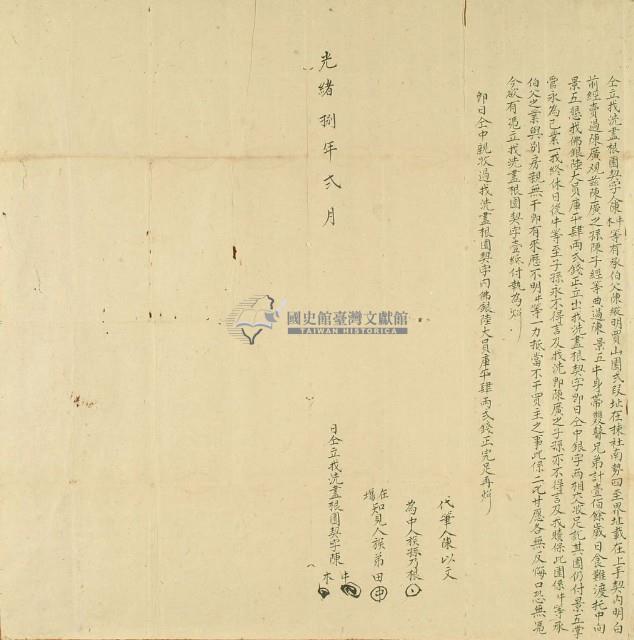 仝立找洗盡根園契字人陳牛木等有承伯父陳縱明買山園弍段址在揀社南勢四至界址載在上手契內明白
前經賣過陳廣观茲陳廣之孫陳子經等典過陳景五牛身帶雙瞽兄弟計壹佰餘歲日食難渡托中向
景五懇找佛銀陸大員庫平肆兩弍錢正立出找洗盡根契字即日仝中銀字兩相交收足訖其園仍付景五掌
管永為己業一找終休日後牛等至子孫永不得言及找洗即陳廣之子孫亦不得言及找贖保此園係牛等承
伯父之業與別房親無干即有來歷不明牛等一力抵當不干買主之事此係二比甘愿各無反悔口恐無憑
今欲有憑立找洗盡根園契字壹紙付執為炤
即日仝中親收過找洗盡根園契字內佛銀陸大員庫平肆兩弍錢正完足再炤
代筆人陳以文
為中人族孫乃
在場知見人族弟田
光緒捌年弍月 日仝立找洗盡根園契字陳牛木
國史館臺灣文獻館
TAIWAN HISTORICA